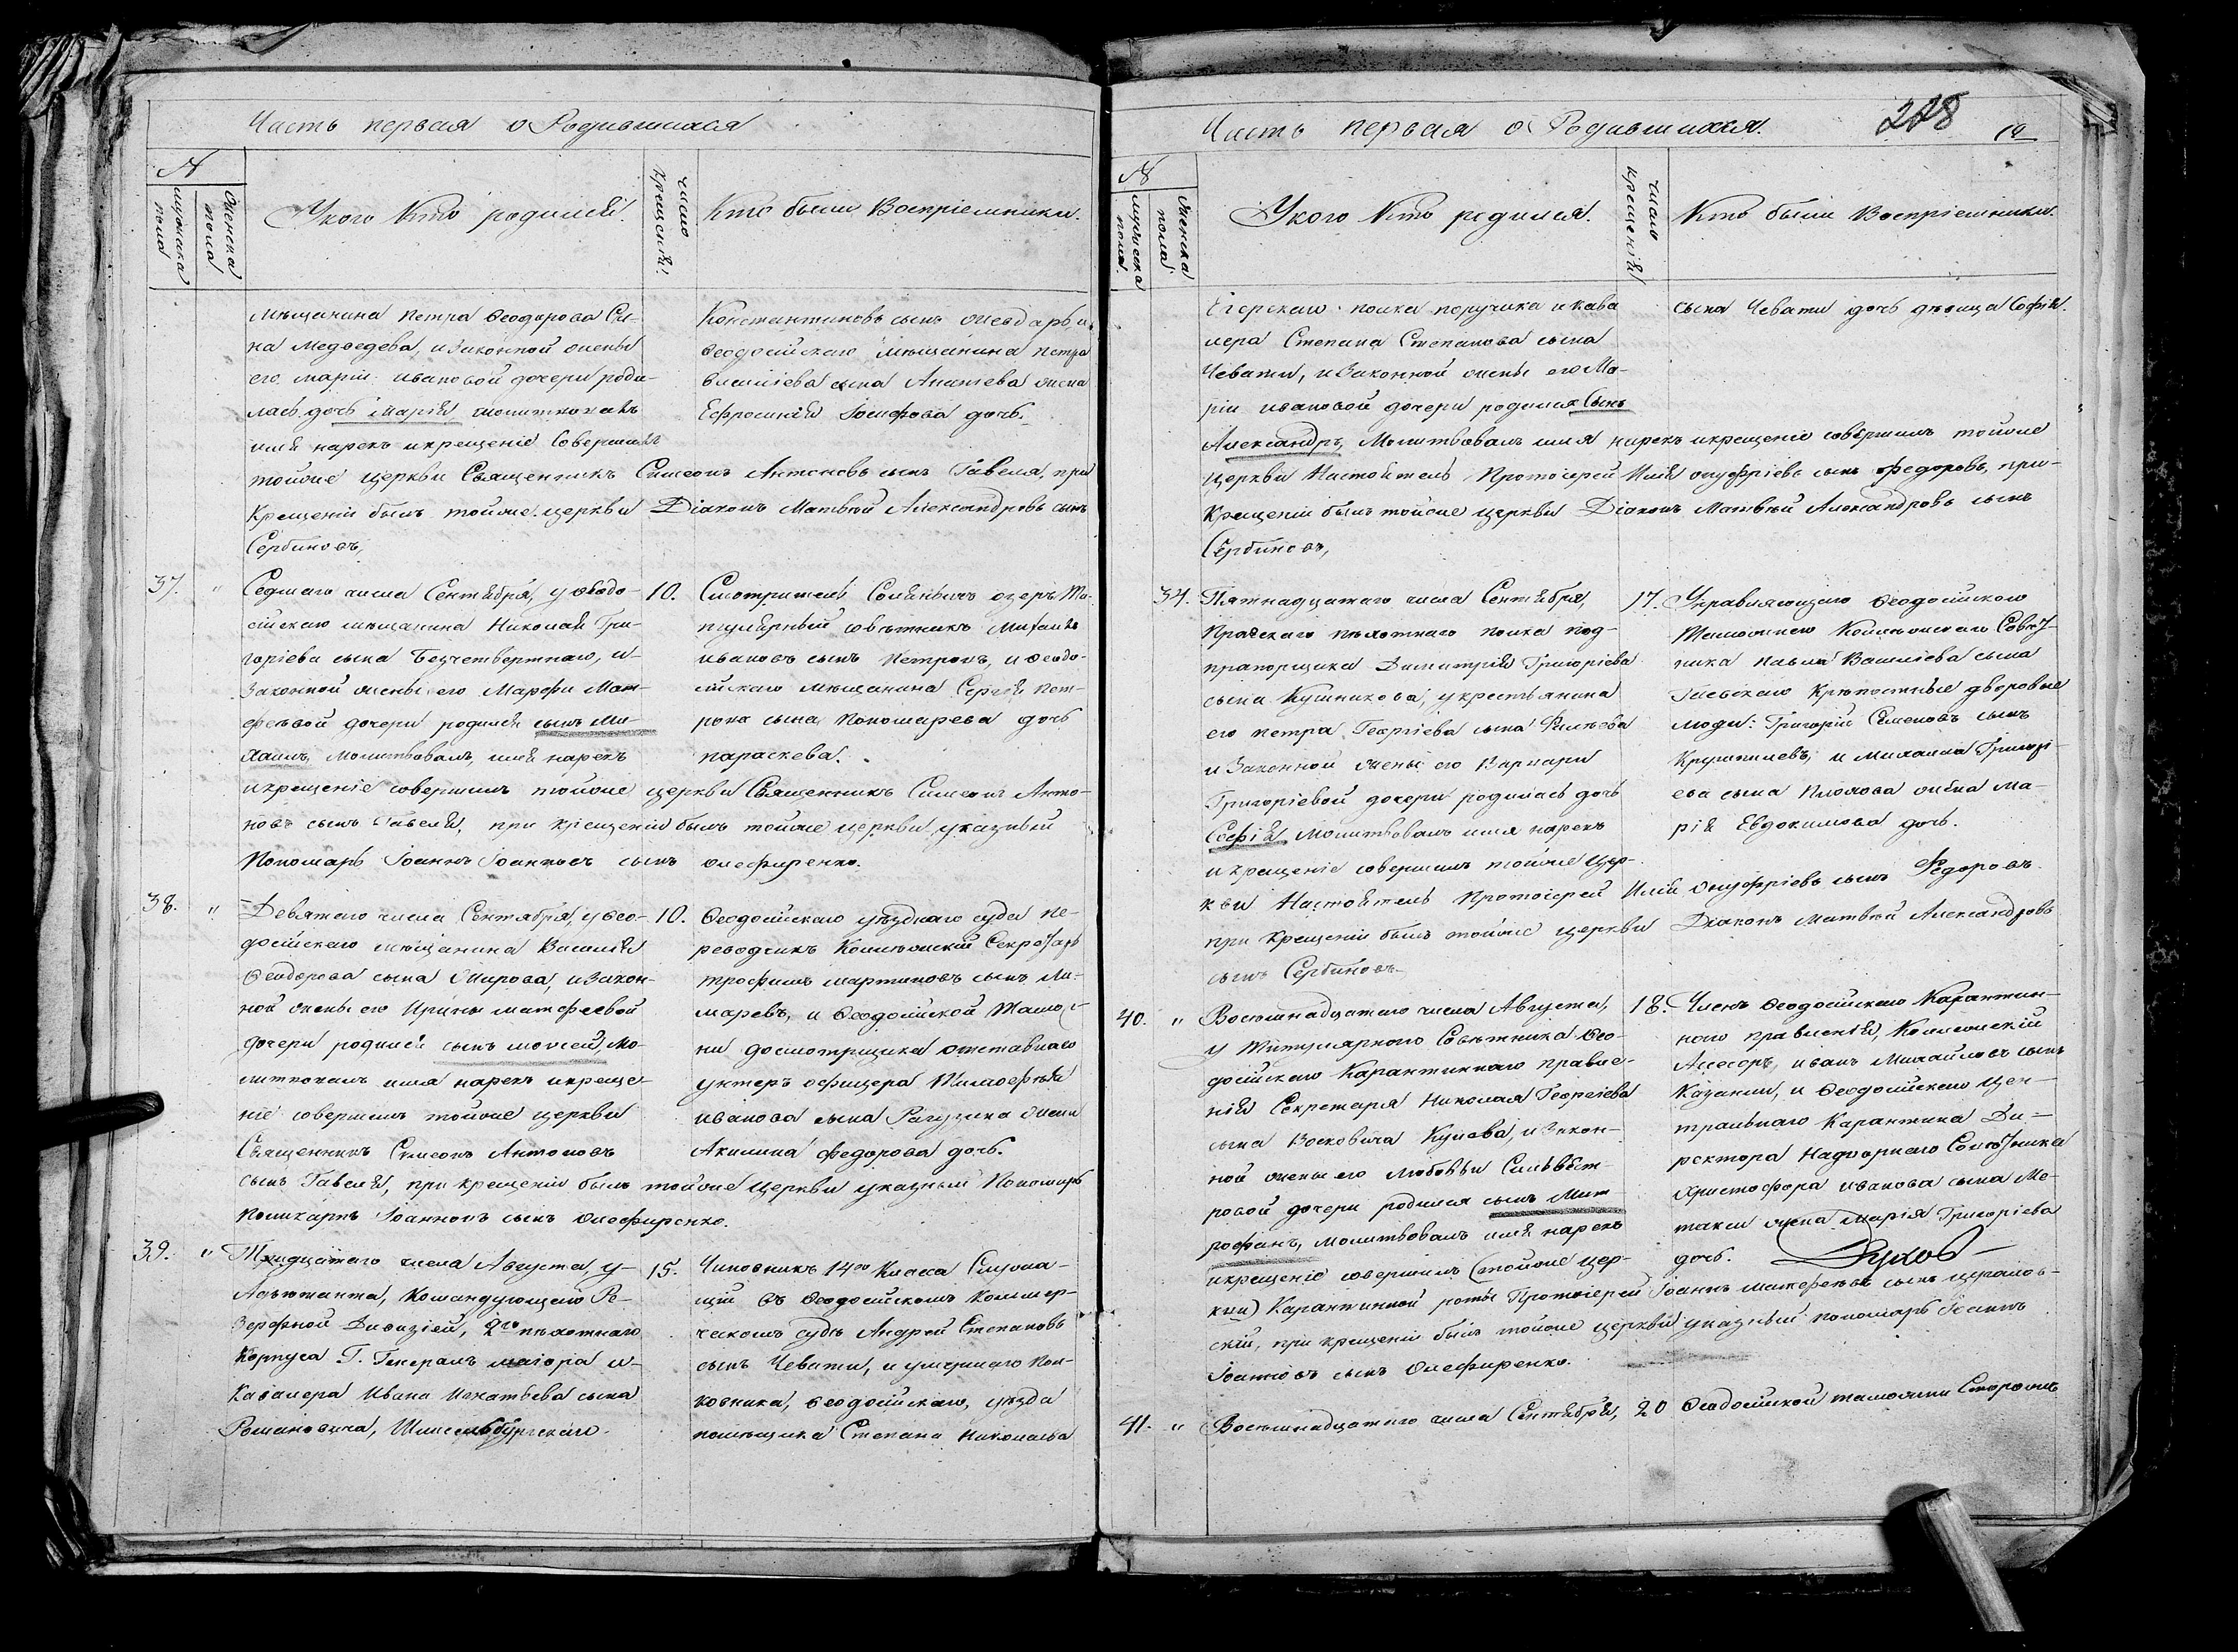 Часть первая о Родившихся
№
мужеска пола
женска пола
У кого кто родился.
число крещенія.
Кто были Воспріемники.
мѣщанина Петра Феодорова Сы-
на Медведева, и Законной жены
его Маріи Ивановой дочери роди-
лась дочь Марія молитвовалъ
имя нарекъ и крещеніе Совершилъ
тойже церкви Священникъ Симеонъ Антоновъ сынъ Гавеля, при
Крещеніи былъ тойже церкви Діаконъ Матвѣй Александровъ сынъ
Сербиновъ,
Константиновъ сынъ
Феодосійскаго мѣщанина Петра
Василіева сына Ананіева жена
Ефросинія Іосифова дочь.
37. "
Седмаго числа Сентября, у Феодо-
сійскаго мѣщанина Николая Гри-
горіева сына Безчетвертнаго, и
Законной жены его Марфи Мат-
феевой дочери родился сынъ Ми-
хаилъ, молитвовалъ, имя нарекъ
и крещеніе совершилъ тойже церкви Священникъ Симеонъ Анто-
новъ сынъ Гавеля, при крещеніи былъ тойже церкви указный
Пономарь Іоаннъ Іоанновъ сынъ Олефиренко.
10.
Смотритель Соляныхъ озеръ Ти-
тулярный совѣтникъ Михаилъ
Ивановъ сынъ Петровъ, и Феодо-
сійскаго мѣщанина Сергѣя Пет-
рова сына Пономарева дочь
Параскева.
38. "
Девятаго числа Сентября, у Фео-
досійскаго мѣщанина Василія
Феодорова сына Жирова, и Закон-
ной жены его Ирины Матфеевой
дочери родился сынъ Моисей, Мо-
литвовалъ имя нарекъ и креще-
ніе совершилъ тойже церкви
Священникъ Симеонъ Антоновъ
сынъ Гавеля, при крещеніи былъ тойже церкви указный Пономарь
Поликарпъ Іоанновъ сынъ Олефиренко.
10.
Феодосійскаго уѣзднаго суда Пе-
реводчикъ Коллежскій Секретарь
Трофимъ Мартиновъ сынъ
и Феодосійской Тамож-
ни досмотрщика отставнаго
унтеръ офицера Тимофѣя
Иванова сына жена
Акилина Федорова дочь.
39. "
Тридцатаго числа Августа, у
Адьютанта, Командующаго Ре-
зервной Дивизіей, 2го пѣхотнаго
Корпуса Г. Генералъ маіора и
Кавалера Ивана Игнатьева сына
Романовича, Шлиссельбургскаго
15.
Чиновникъ 14го Класса Служа-
щій въ Феодосійскомъ Коммер-
ческомъ судѣ Андрей Степановъ
сынъ Чевати, и умершаго Пол-
ковника, Феодосійскаго, уѣзда
помѣщика Степана Николаева
Часть первая о Родившихся.
228
10
№
мужеска пола.
женска пола.
У кого кто родился.
число крещенія
Кто были Воспріемники.
Егерскаго полка поручика и кава
лера Степана Степанова сына
Чевати, и Законной жены его Ма-
ріи Ивановой дочери родился Сынъ
Александръ, Молитвовалъ имя нарекъ и крещеніе совершилъ тойже
церкви Настоятель Протоіерей Илія Онуфріевъ сынъ Федоровъ, при
Крещеніи былъ тойже церкви Діаконъ Матвѣй Александровъ сынъ
Сербиновъ,
сына Чевати дочь дѣвица Софія.
34.
Пятнадцатаго числа Сентября,
Пражскаго пѣхотнаго полка под-
прапорщика Димитрія Григоріева
сына Кушникова, у крестьянина
его Петра Георгіева сына
и Законной жены его Варвари
Григоріевой дочери родилась дочь
Софія Молитвовалъ имя нарекъ
и крещеніе совершилъ тойже цер-
кви Настоятель Протоіерей Илія Онуфріевъ сынъ Федоровъ
при крещеніи былъ тойже церкви Діаконъ Матвѣй Александровъ
сынъ Сербиновъ.
17.
Управляющаго Феодосійскою
Таможнею Коллежскаго Совѣт-
ника Павла Василіева сына
Гаевскаго Крѣпостные дворовые
люди: Григорій Семеновъ сынъ
и Михаила Григорі-
ева сына жена Ма-
рія Евдокимова дочь.
40. "
Восемнадцатаго числа Августа,
у Титулярнаго Совѣтника Фео-
досійскаго Карантиннаго правле-
нія Секретаря Николая Георгіева
сына и Закон-
ной жены его Любови Сильвест-
ровой дочери родился сынъ Мит-
рофанъ, молитвовалъ имя нарекъ
и крещеніе совершилъ (тойже цер-
кви) Карантинной роты Протоіерей Іоаннъ Матфеевъ сынъ
скій, при крещеніи былъ тойже церкви указный пономарь Іоаннъ
Іоанновъ сынъ Олефиренко.
18.
Членъ Феодосійскаго Карантин-
наго правленія, Коллежскій
Асесоръ, Иванъ Михайловъ сынъ
и Феодосійскаго Цен-
тральнаго Карантина Ди-
ректора Надворнаго Совѣтника
Христофора Иванова сына Ме-
такси жена Марія Григоріева
дочь.
41. "
Восемнадцатаго числа Сентября,
20
Феодосійской таможни Сторожъ